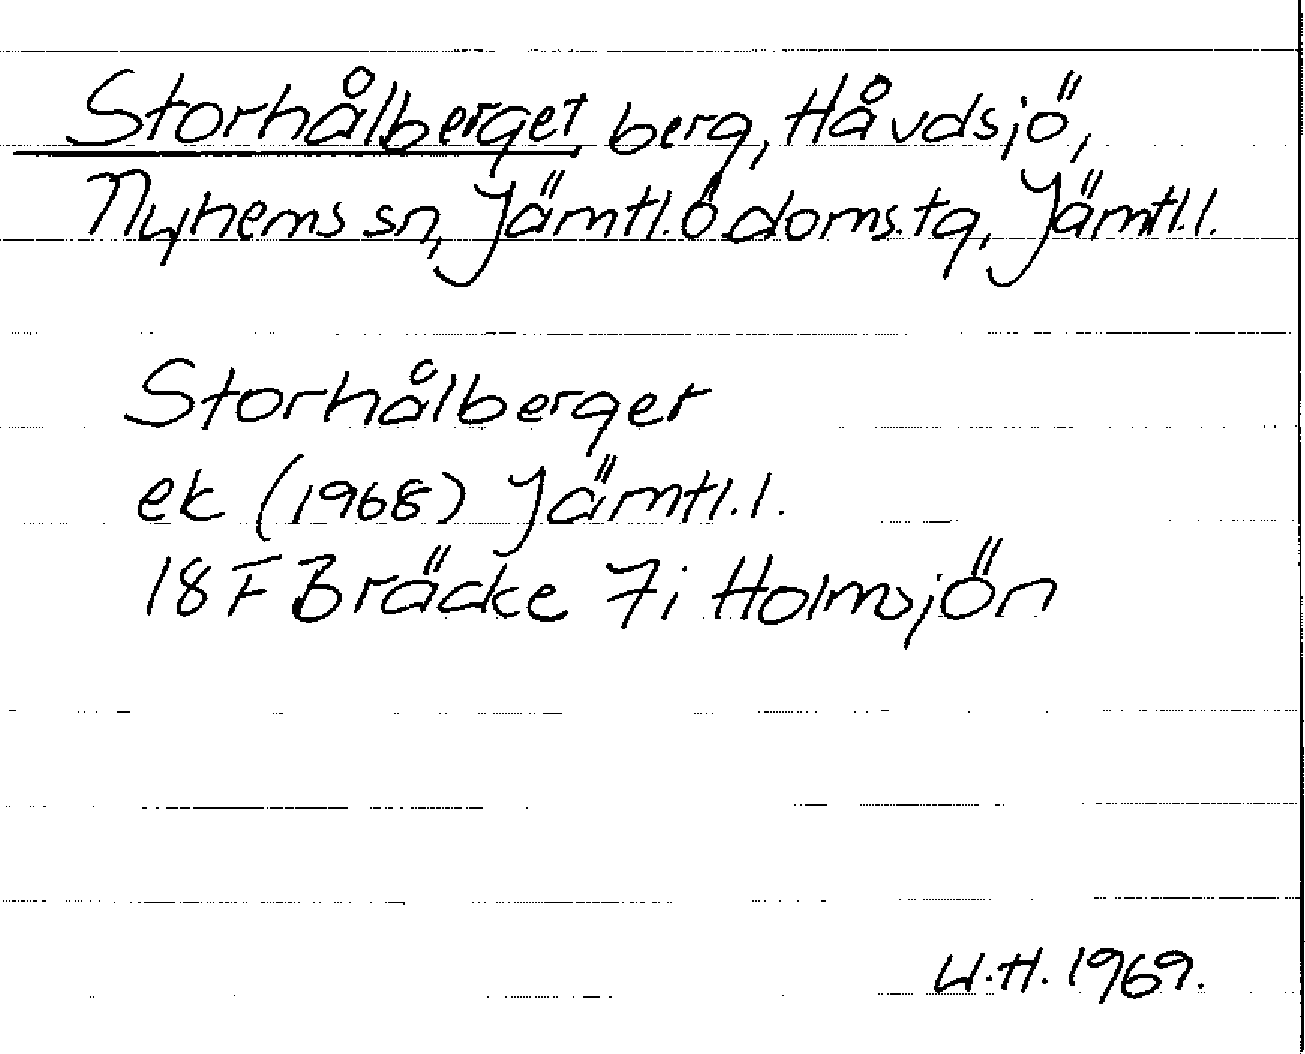 Storhålberget, berg, Håvdsjö,
Nyhems sn, Jämtl. Ö doms. tg, Jämtl. l.
Storhålberget
ek (1968) Jämtl. l.
18F Bräcke 7i Holmsjön
U.H. 1969.